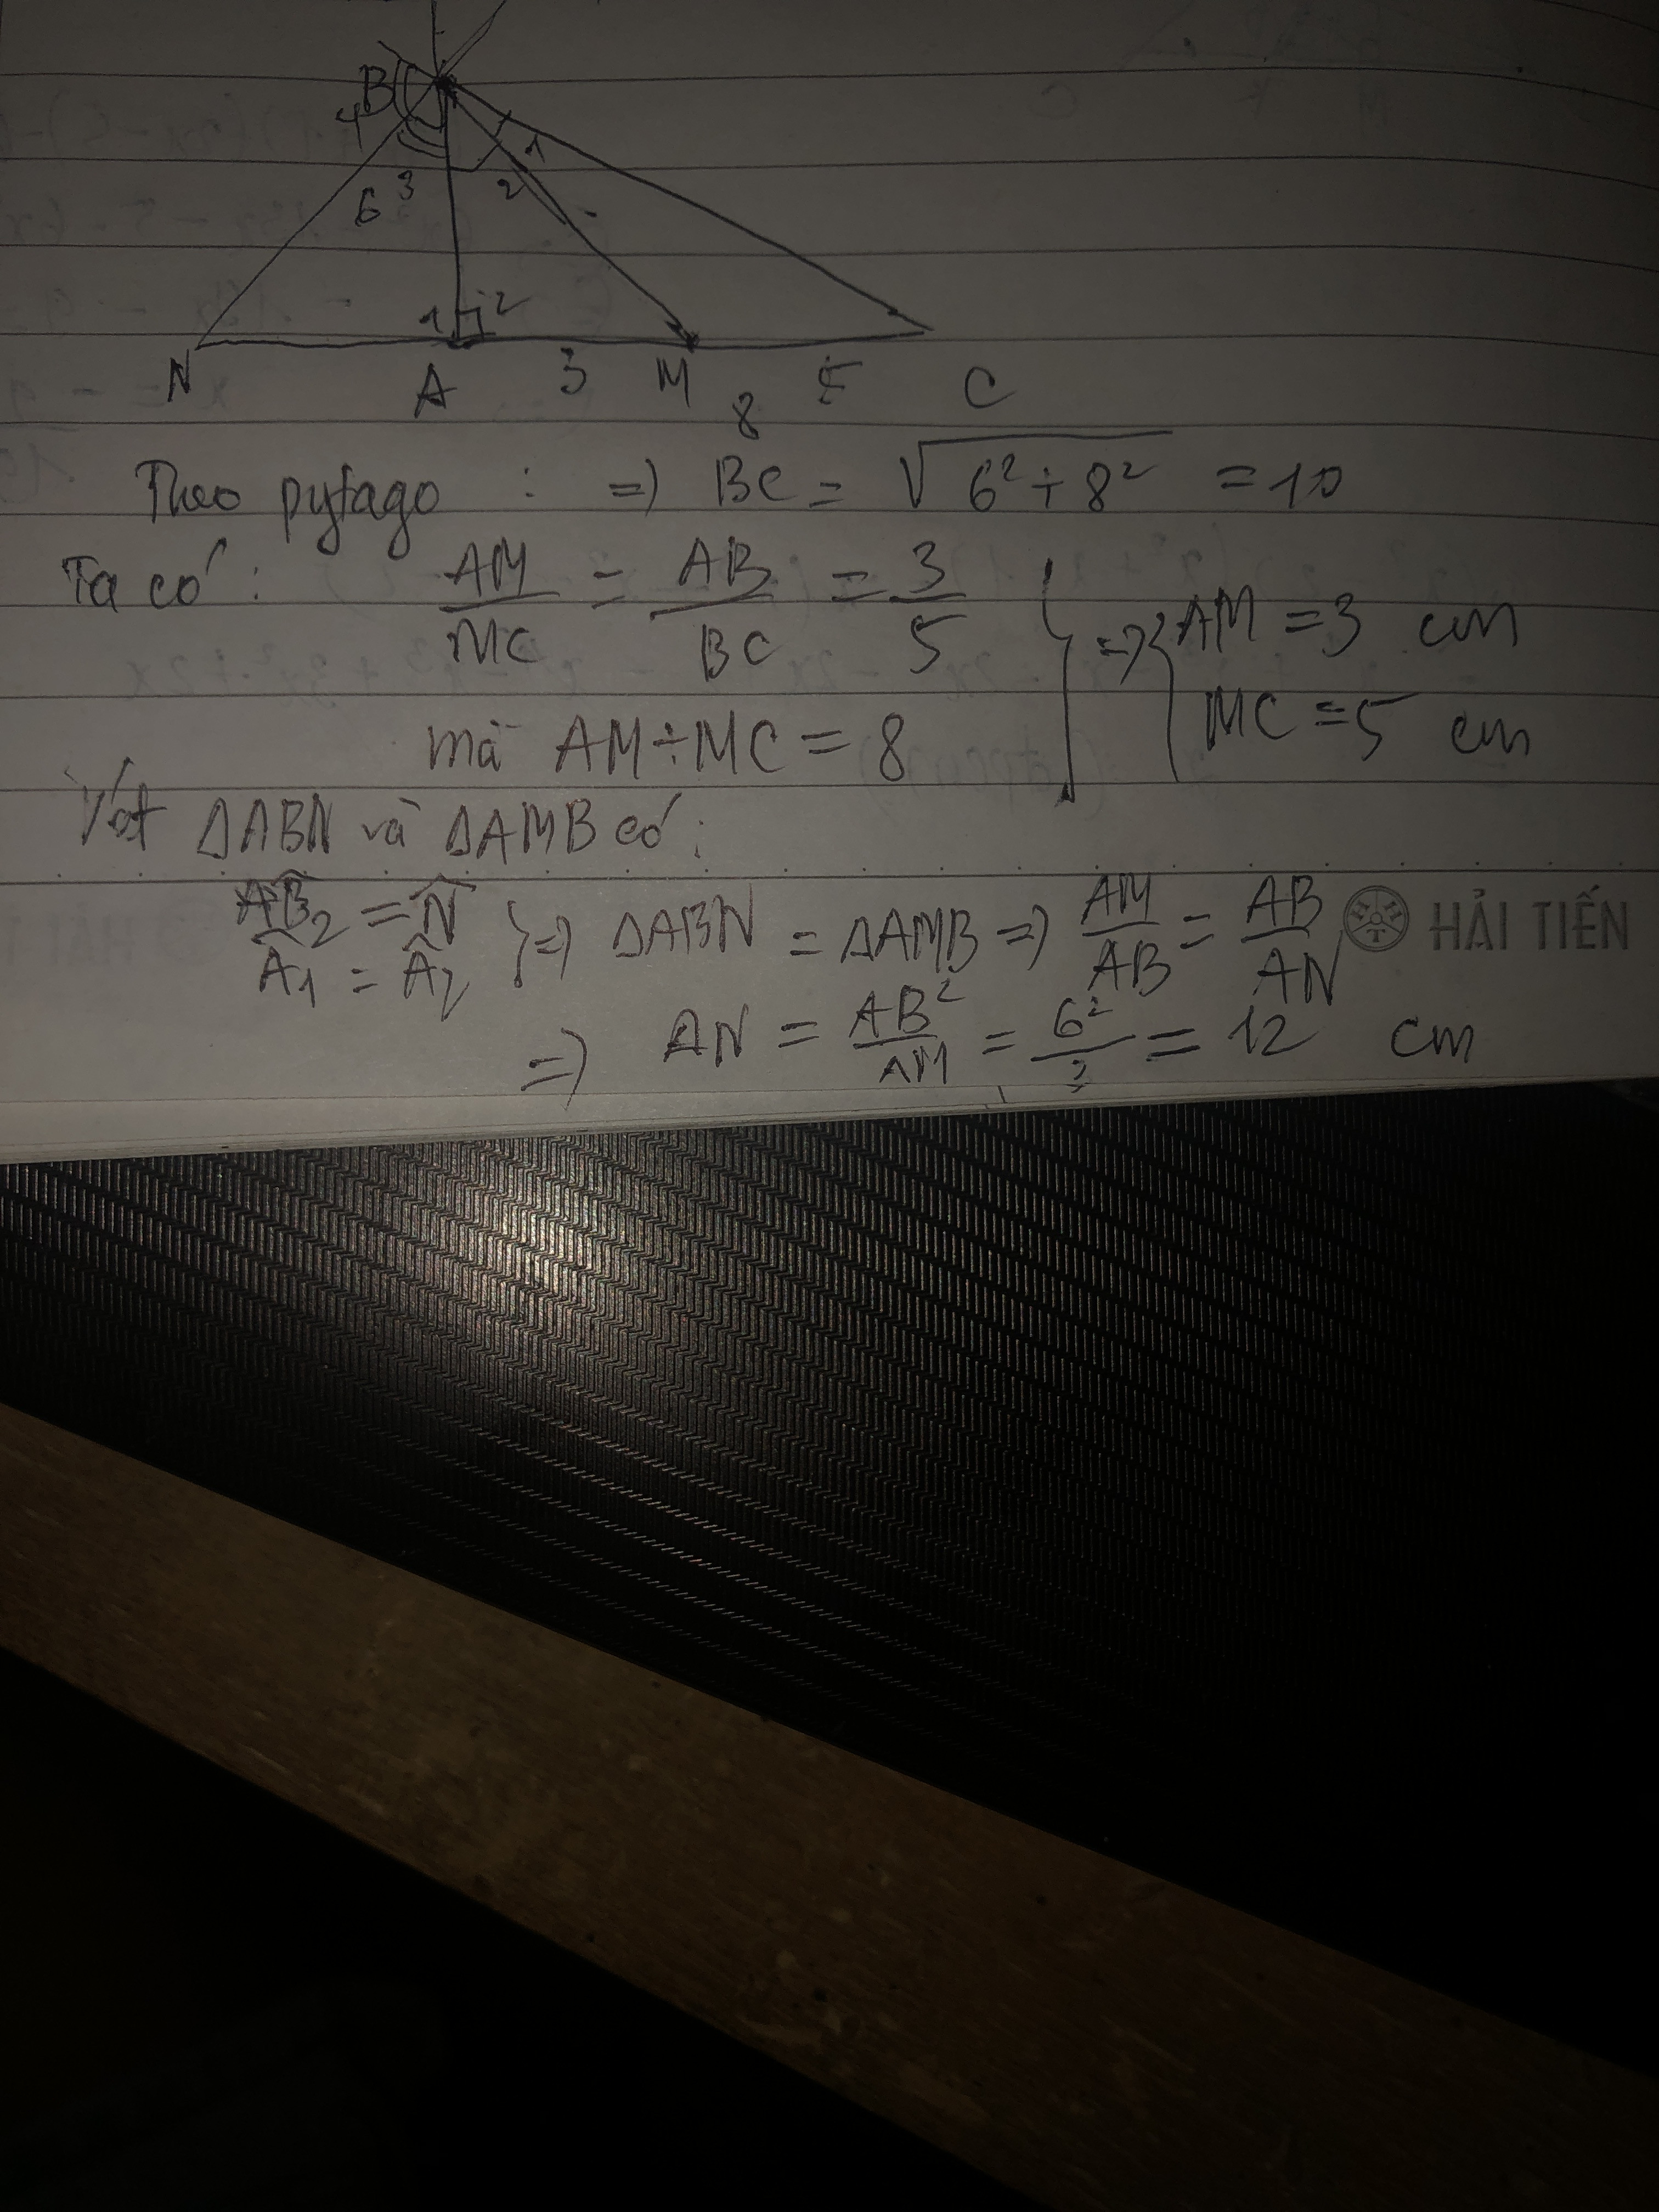 B
4
1
6 3 2
1 2
N A 3 M 5 C
8
Theo pytago : => BC = √(6² + 8²) = 10
Ta có : AM/MC = AB/BC = 3/5
mà AM + MC = 8
=> { AM = 3 cm
MC = 5 cm
Xét ΔABN và ΔAMB có :
B̂₂ = N̂
Â₁ = Â₂ } => ΔABN = ΔAMB => AM/AB = AB/AN
HẢI TIẾN
=> AN = AB²/AM = 6²/3 = 12 cm